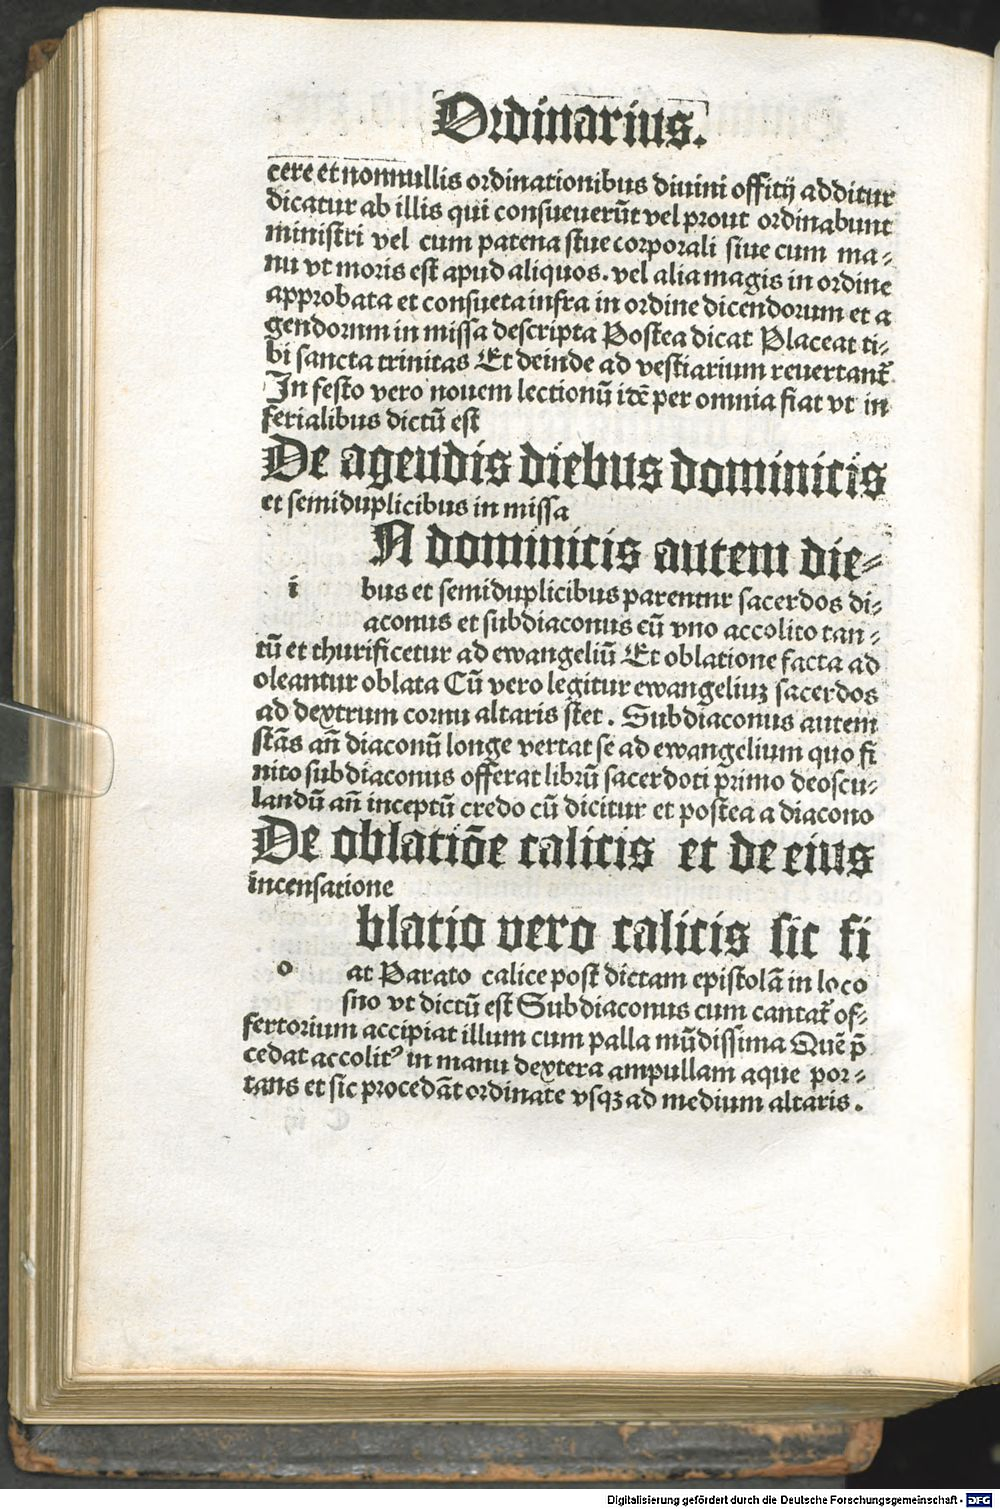 Ordinarius.
cere et nonnullis ordinationibus diuini offitij additur
dicatur ab illis qui consueuerūt vel prout ordinabunt
ministri vel cum patena siue corporali siue cum ma-
nu vt moris est apud aliquos. vel alia magis in ordine
approbata et consueta infra in ordine dicendorum et a
gendorum in missa descripta Postea dicat Placeat ti-
bi sancta trinitas Et deinde ad vestiarium reuertant᷑
In festo vero nouem lectionū idē per omnia fiat vt in
ferialibus dictū est
De agendis diebus dominicis
et semiduplicibus in missa
i N dominicis autem die-
bus et semiduplicibus parentur sacerdos di-
aconus et subdiaconus cū vno accolito tan-
tū et thurificetur ad ewangeliū Et oblatione facta ad
oleantur oblata Cū vero legitur ewangeliuꝫ sacerdos
ad dextrum cornu altaris stet. Subdiaconus autem
stās añ diaconū longe vertat se ad ewangelium quo fi
nito subdiaconus offerat librū sacerdoti primo deoscu-
landū añ inceptū credo cū dicitur et postea a diacono
De oblatiōe calicis et de eius
incensatione
o blatio vero calicis sic fi
at Parato calice post dictam epistolā in loco
suo vt dictū est Subdiaconus cum cantat᷑ of-
fertorium accipiat illum cum palla mūdissima Quē p̄
cedat accolitꝰ in manu dextera ampullam aque por-
tans et sic procedāt ordinate vsqꝫ ad medium altaris.
Digitalisierung gefördert durch die Deutsche Forschungsgemeinschaft - DFG